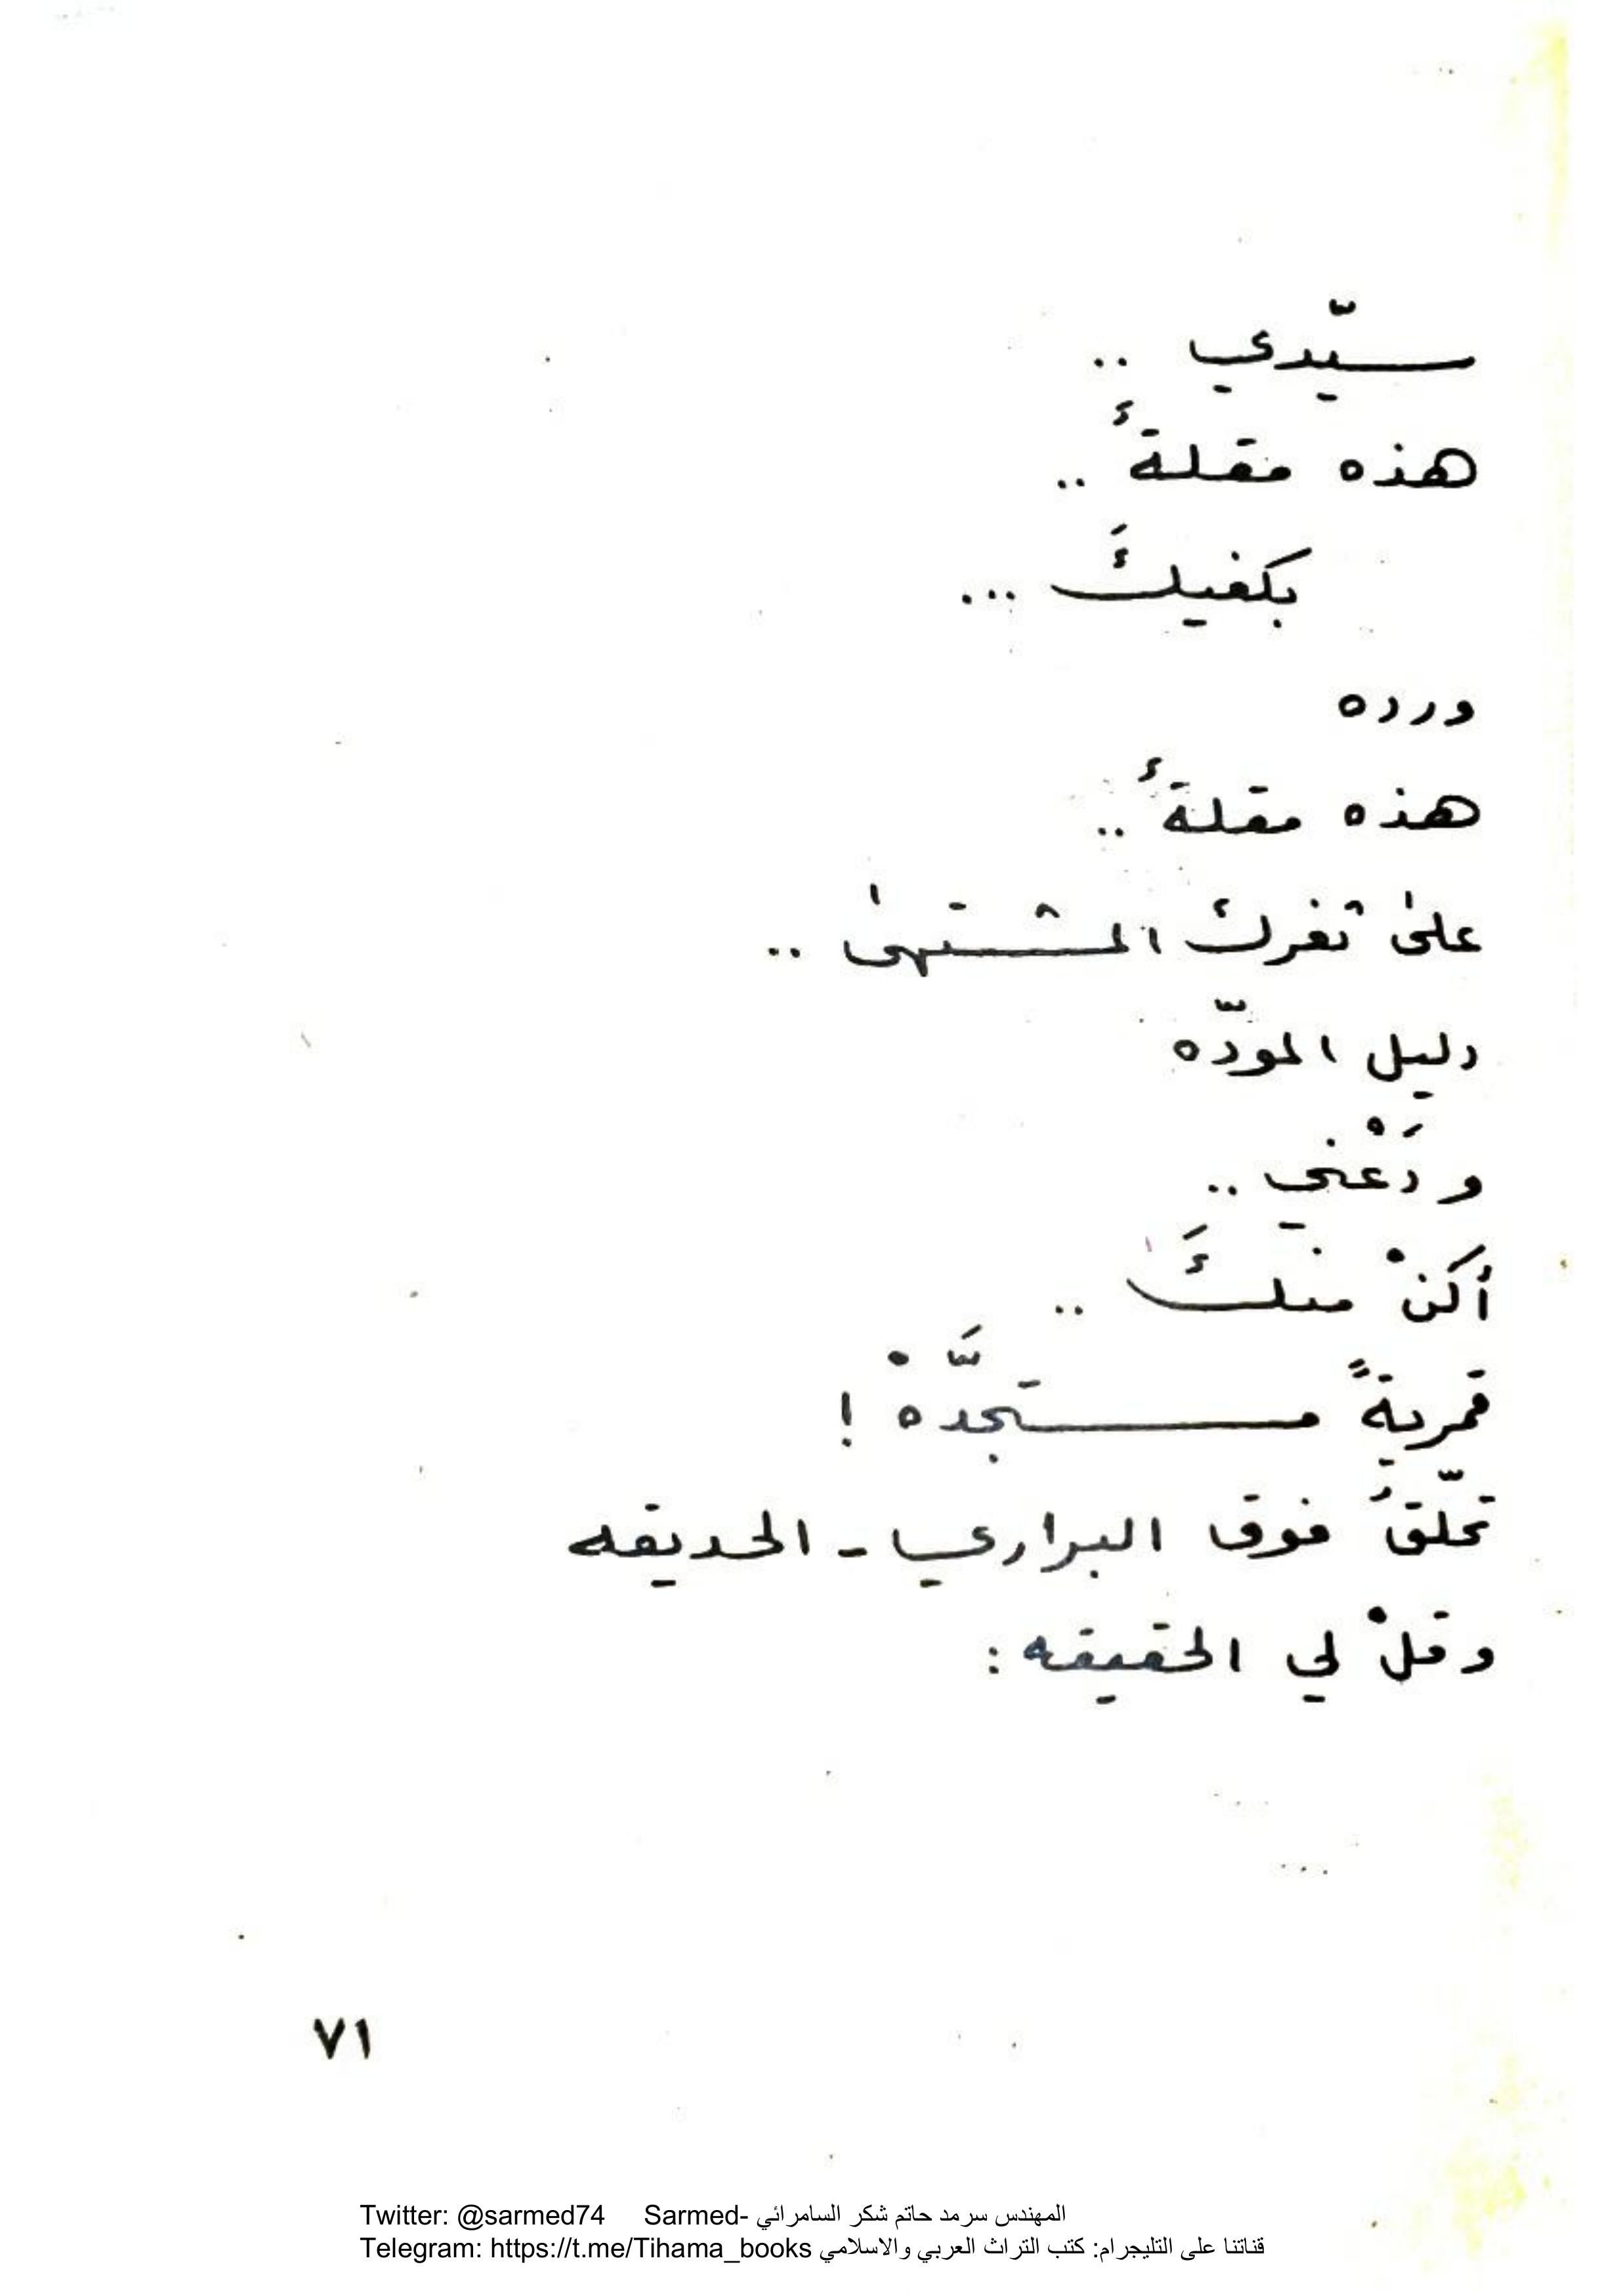 سيّدي ..
هذه مقلةٌ ..
بكفيكَ ...
ورده
هذه مقلةٌ ..
على ثغرك المشتهى ..
دليل المودّه
ودَعْني ..
أكنْ منكَ ..
قمريةً مستجدَّهْ !
تحلّقُ فوق البراري - الحديقه
وقلْ لي الحقيقه :
٧١
Twitter: @sarmed74 Sarmed- المهندس سرمد حاتم شكر السامرائي
Telegram: https://t.me/Tihama_books قناتنا على التليجرام: كتب التراث العربي والاسلامي